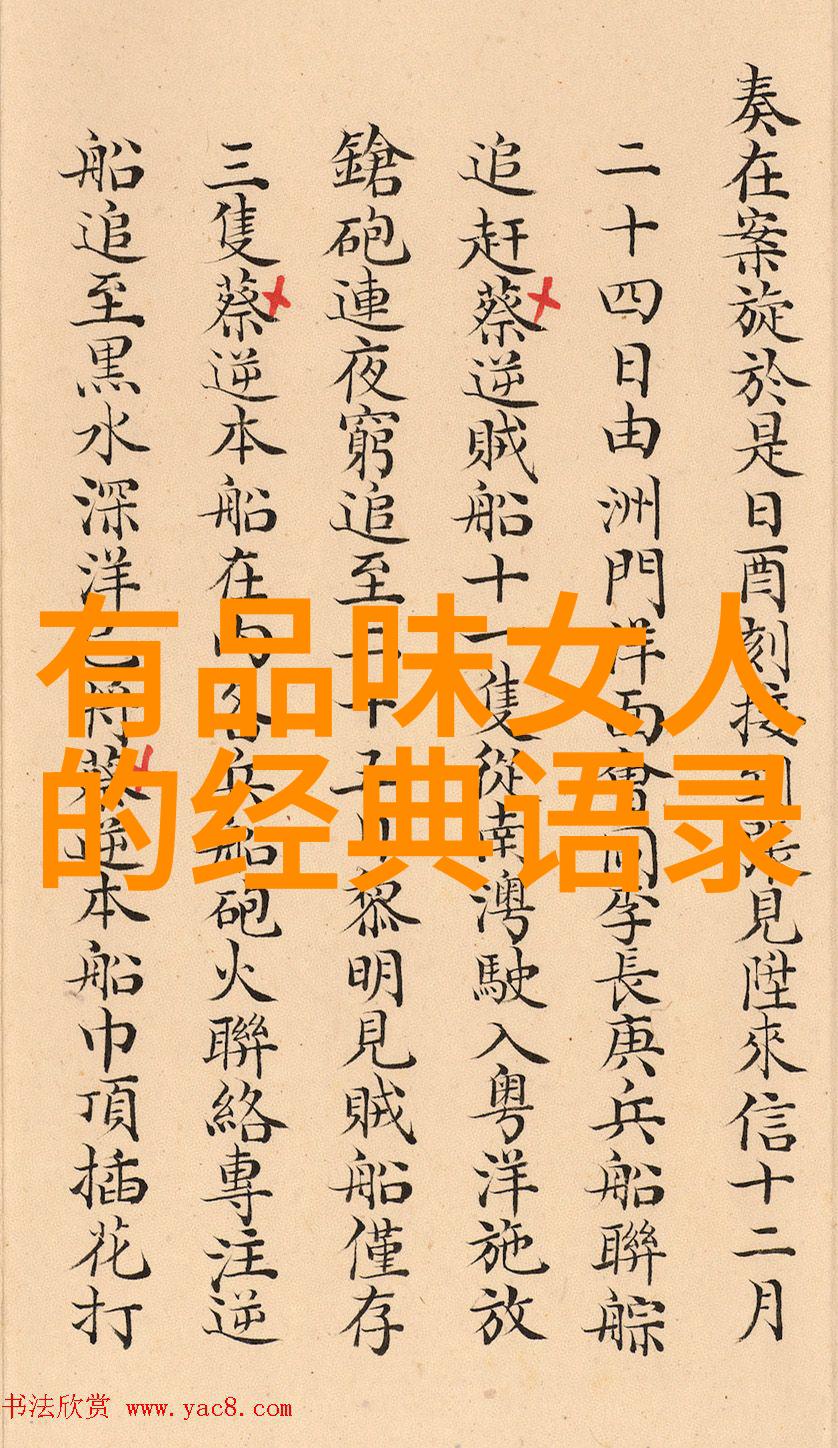 奏在案旋於是日酉刻接到張見陞來信十二月
二十四日由洲門洋面會同李長庚兵船聯䑸
追赶蔡逆賊船十一隻從南澳駛入粤洋施放
鎗砲連夜窮追至二十五日黎明見賊船僅存
三隻蔡逆本船在內各兵船砲火聯絡專注逆
船追至黒水深洋已將蔡逆本船巾頂插花打
有品味女人
的经典语录
书法欣赏 www.yac8.com